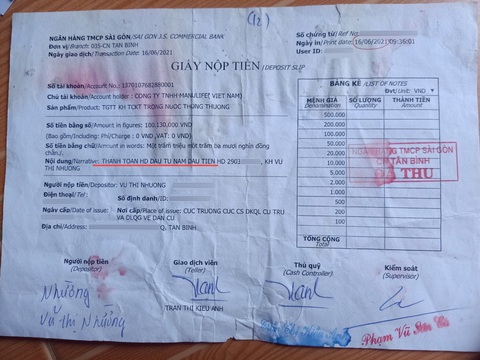 (12)
NGÂN HÀNG TMCP SÀI GÒN/SAI GON J.S. COMMERCIAL BANK
Đơn vị/Branch: 035-CN TAN BINH
Ngày giao dịch/Transaction Date: 16/06/2021
Số chứng từ/Ref No
Ngày in/Print date: 16/06/2021 09:36:01
User ID
GIẤY NỘP TIỀN/DEPOSIT SLIP
Số tài khoản/Account No.: 1370107682880001
Chủ tài khoản/Account holder : CONG TY TNHH MANULIFE( VIET NAM)
Sản phẩm/Product: TGTT KH TCKT TRONG NUOC THONG THUONG
Số tiền bằng số/Amount in figures: 100,130,000 VND
(Bao gồm/Including: Phí/Charge : 0 VND ,VAT: 0 VND)
Số tiền bằng chữ/Amount in words: Một trăm triệu một trăm ba mươi nghìn đồng
chẵn./
Nội dung/Narrative: THANH TOAN HD DAU TU NAM DAU TIEN HD 2903, KH VU
THI NHUONG
BẢNG KÊ /LIST OF NOTES
Đơn vị tính/Unit: VND
MỆNH GIÁ SỐ LƯỢNG THÀNH TIỀN
Denomination Quantity Amount
500,000
200,000
100,000
50,000
20,000
10,000
5,000
2,000
1,000
500
200
100
TỔNG CỘNG
Total
NGÂN HÀNG TMCP SÀI GÒN
CN TÂN BÌNH
ĐÃ THU
Người nộp tiền/Depositor: VU THI NHUONG
Điện thoại/Tel :
Số định danh/ID :
Ngày cấp/Date of issue: Nơi cấp/Place of issue: CUC TRUONG CUC CS DKQL CU TRU
VA DLQG VE DAN CU
Địa chỉ/Address: Q, TAN BINH
Người nộp tiền Giao dịch viên Thủ quỹ Kiểm soát
(Depositor) (Teller) (Cash Controller) (Supervisor)
Nhường
Vũ Thị Nhường
TRAN THI KIEU ANH